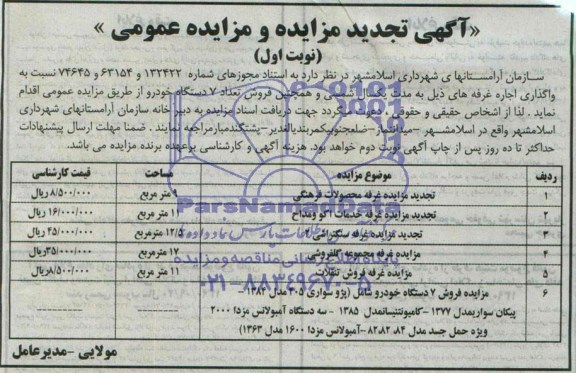 «آگهی تجدید مزایده و مزایده عمومی»
(نوبت اول)
سازمان آرامستانهای شهرداری اسلامشهر در نظر دارد به استناد مجوزهای شماره ۱۳۲۴۲۲ و ۶۳۱۵۴ و ۷۴۶۴۵ نسبت به
واگذاری اجاره غرفه های ذیل به مدت یکسال و همچنین فروش تعداد ۷ دستگاه خودرو از طریق مزایده عمومی اقدام
نماید. لذا از اشخاص حقیقی و حقوقی، دعوت میگردد جهت دریافت اسناد مزایده به دبیر خانه سازمان آرامستانهای شهرداری
اسلامشهر واقع در اسلامشهر - میدان نماز - ضلع جنوبی کمربندی الغدیر - پشت گندمبار مراجعه نمایند. ضمنا مهلت ارسال پیشنهادات
حداکثر تا ده روز پس از چاپ آگهی نوبت دوم خواهد بود. هزینه آگهی و کارشناسی برعهده برنده مزایده می باشد.
ردیف موضوع مزایده مساحت قیمت کارشناسی
۱ تجدید مزایده غرفه محصولات فرهنگی ۹ متر مربع ۸/۵۰۰/۰۰۰ ریال
۲ تجدید مزایده غرفه خدمات اکو ومداح ۱۱ متر مربع ۱۶/۰۰۰/۰۰۰ ریال
۳ تجدید مزایده غرفه سنگتراشی ۲ ۱۲/۵ متر مربع ۴۵/۰۰۰/۰۰۰ ریال
۴ مزایده غرفه مجموعه گلفروشی ۱۷ مترمربع ۳۵/۰۰۰/۰۰۰ ریال
۵ مزایده غرفه فروش تنقلات ۱۱ متر مربع ۸/۵۰۰/۰۰۰ ریال
۶ مزایده فروش ۷ دستگاه خودرو شامل (پژو سواری ۴۰۵ مدل ۱۳۸۲-
پیکان سواری مدل ۱۳۷۷ - کامیونت نیسان مدل ۱۳۸۵ - سه دستگاه آمبولانس مزدا ۲۰۰۰
ویژه حمل جسد مدل ۸۲،۸۲،۸۴ - آمبولانس مزدا ۱۶۰۰ مدل ۱۳۶۳)
مولایی - مدیرعامل
ParsNamadData
پایگاه اطلاع رسانی مناقصه و مزایده
۰۲۱-۸۸۳۴۹۶۷۰-۵